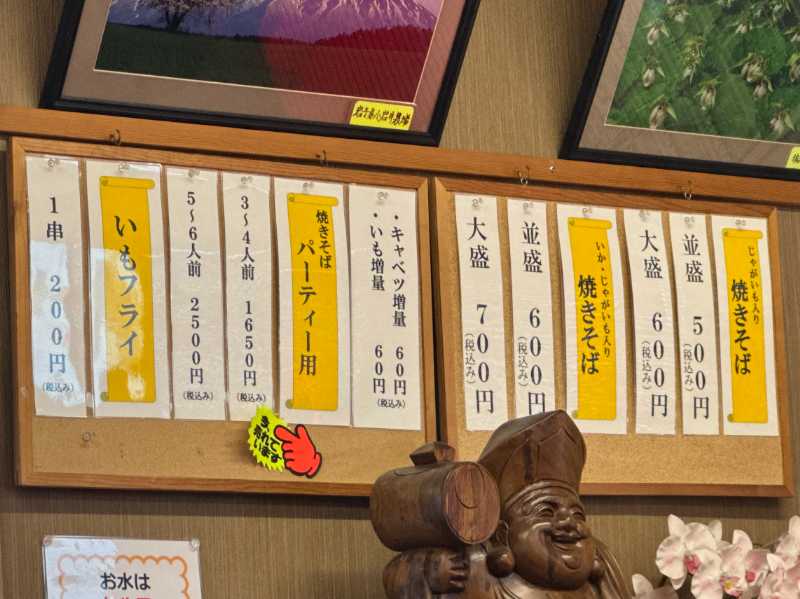 じゃがいも入り
焼きそば
並盛 500円
(税込み)
大盛 600円
(税込み)
いか・じゃがいも入り
焼きそば
並盛 600円
(税込み)
大盛 700円
(税込み)
・キャベツ増量 60円
・いも増量 60円
(税込み)
焼きそば
パーティー用
3〜4人前 1650円
(税込み)
5〜6人前 2500円
(税込み)
いもフライ
(税込み)
1串 200円
(税込み)
売れて
います
お水は